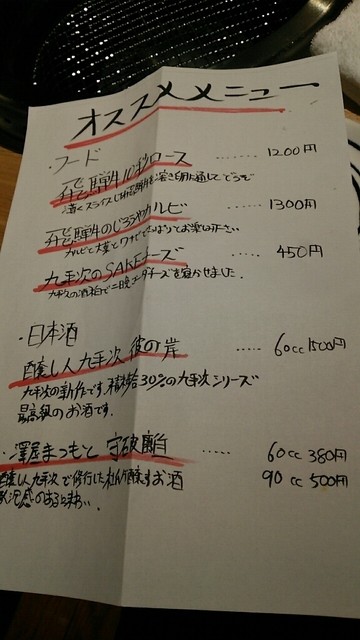 オススメメニュー
・フード
飛騨牛 ロース ...... 1200円
薄くスライスした飛騨牛を溶き卵に通してどうぞ
飛騨牛のじろうやカルビ ...... 1300円
カルビと大葉とワサビでさっぱりとお召し下さい
九平次のSAKEチーズ ...... 450円
九平次の酒粕で二晩チーズを寝かせました.
・日本酒
醸し人九平次 彼の岸 ..... 60cc 1500円
九平次の新作です。精米歩合30%の九平次シリーズ
最高級のお酒です.
澤屋まつもと 守破離 ..... 60cc 380円
醸し人九平次で修行した杜氏が醸すお酒 90cc 500円
のある味わい.